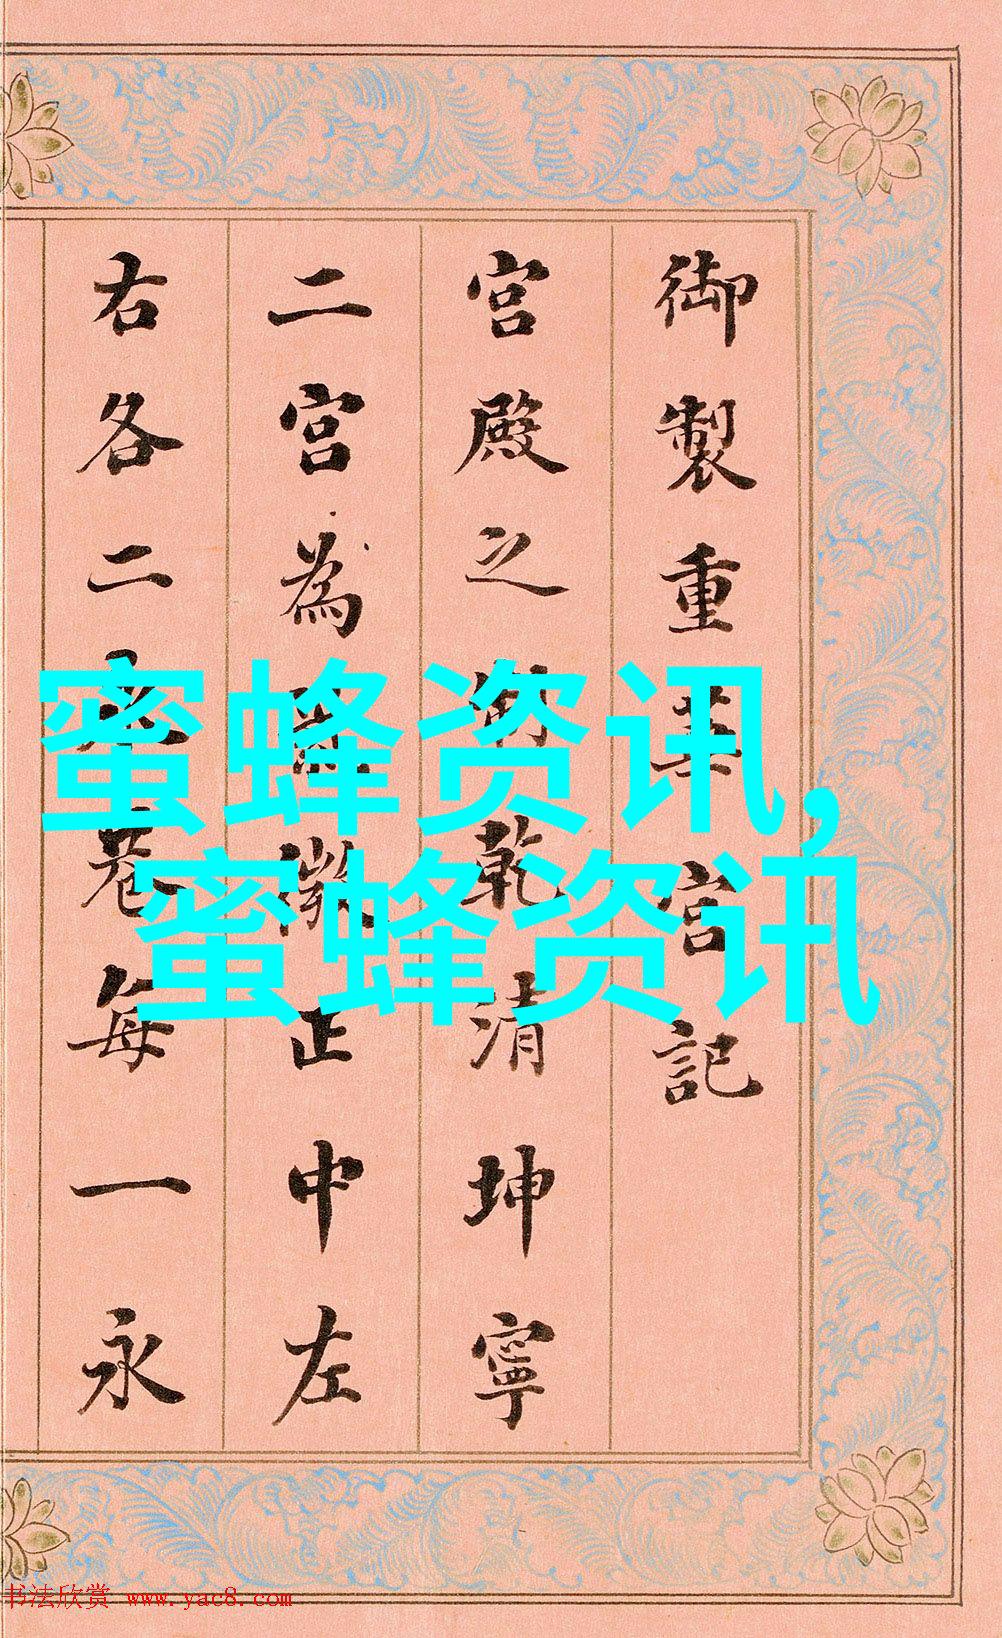 御製重華宮記
宮殿之乾清坤寧
二宮為微正中左
右各二永巷每一永
蜜蜂资讯,
蜜蜂资讯
书法欣赏 www.yac8.com